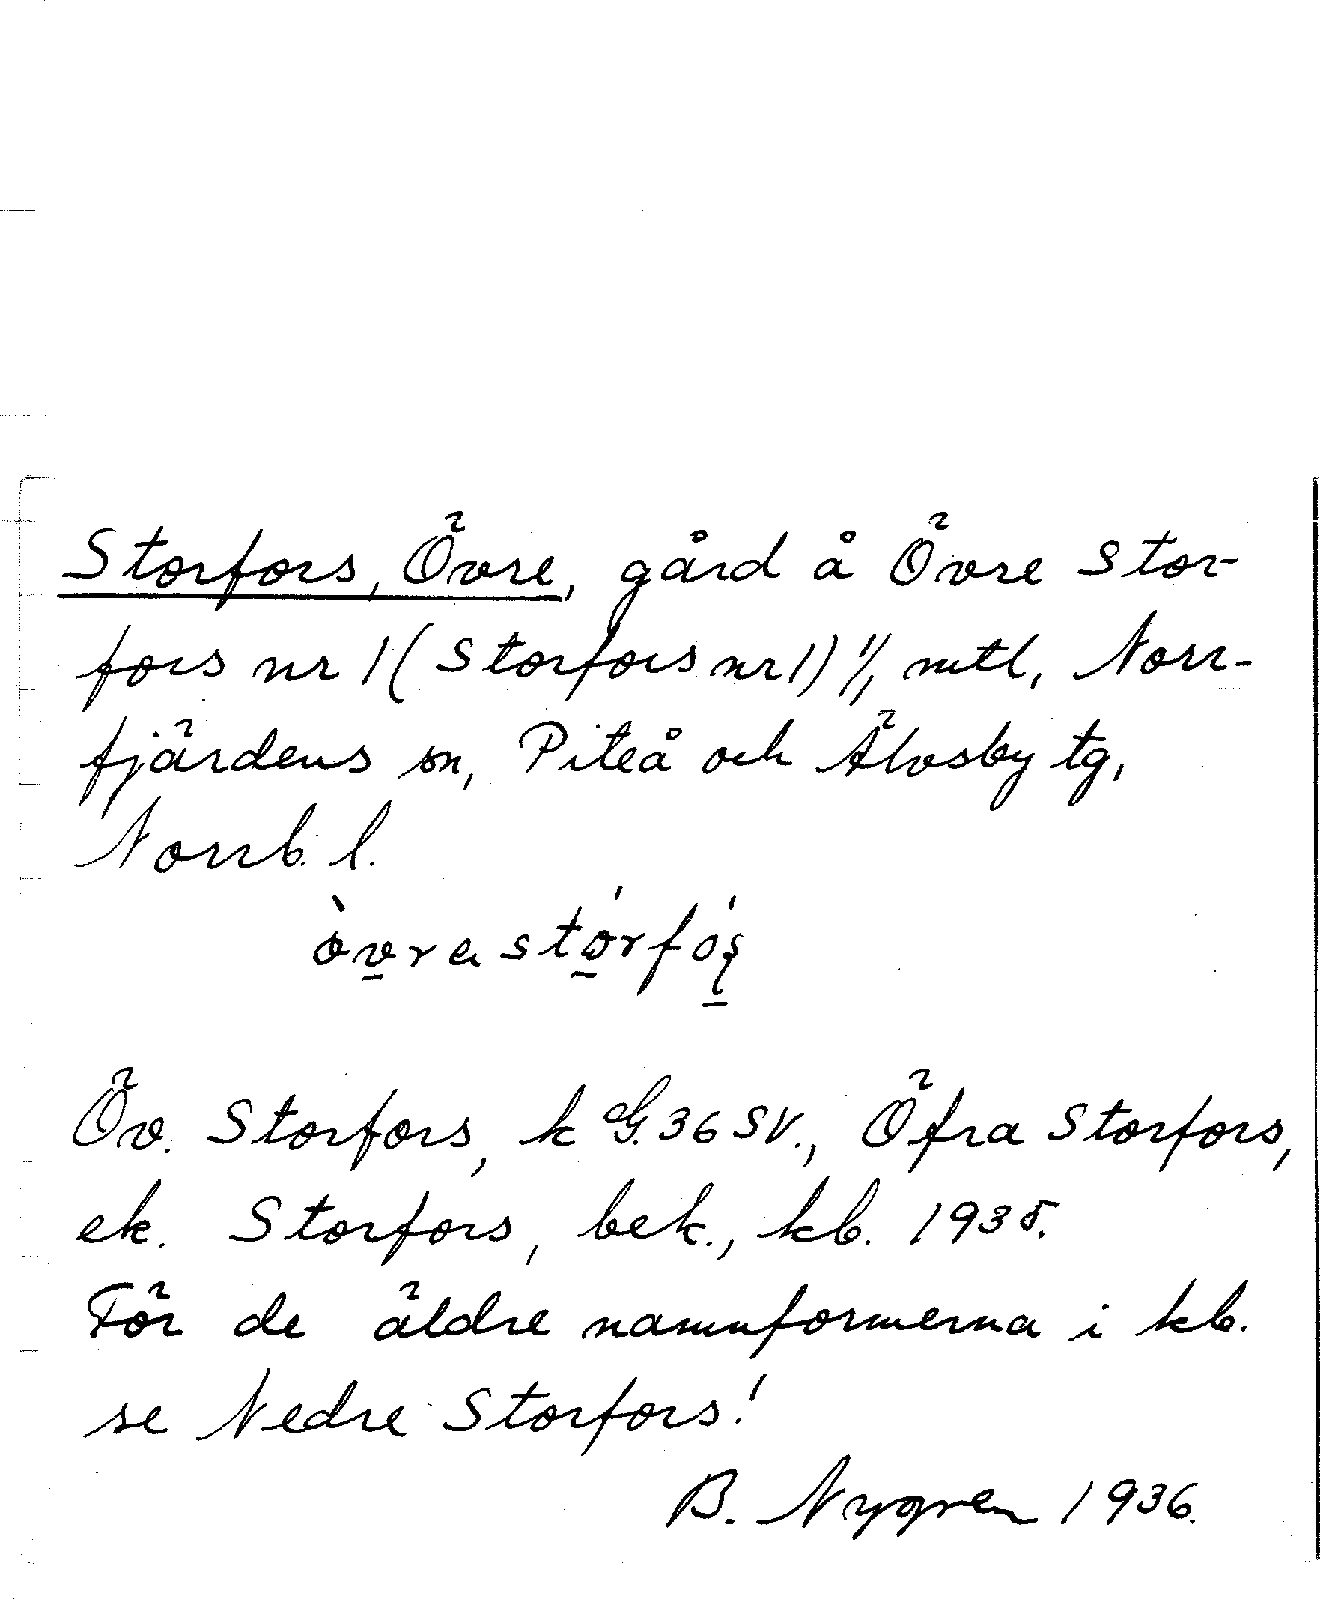 Storfors, Övre, gård å Övre Stor-
fors nr 1 (Storfors nr 1) 1/1 mtl, Norr-
fjärdens sn, Piteå och Älvsby tg,
Norrb. l.
òvra stórfó̱ş
Öv. Storfors, k G. 36 SV., Öfra Storfors,
ek. Storfors, bek., kb. 1935.
För de äldre namnformerna i kb.
se Nedre Storfors!
B. Nygren 1936.